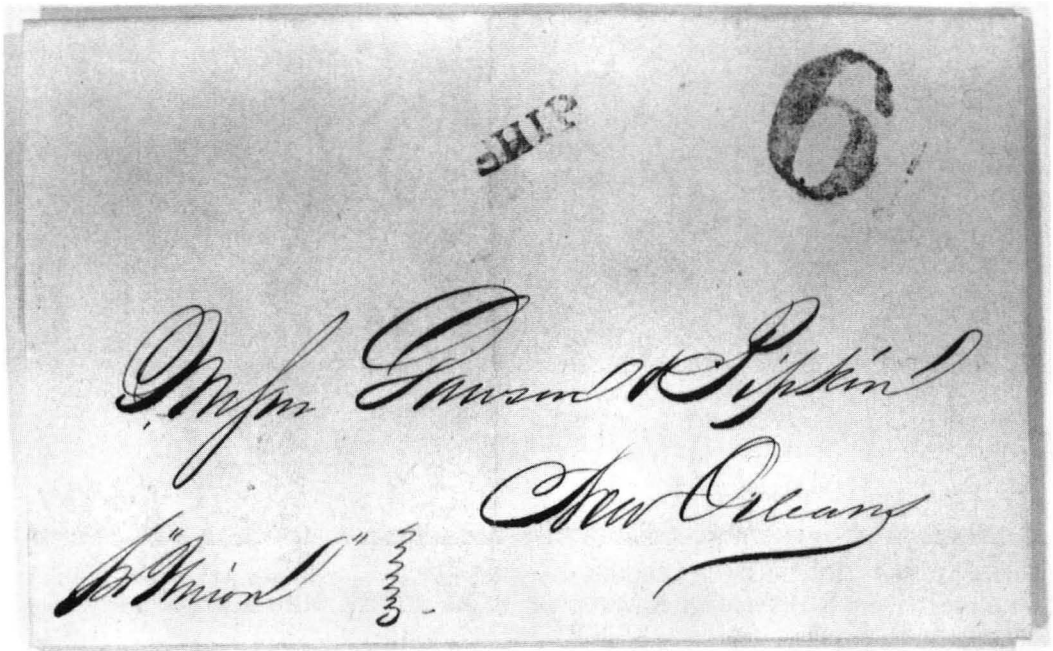 SHIP
6
Messrs Lawson & Pipkin
New Orleans
pr "Union"